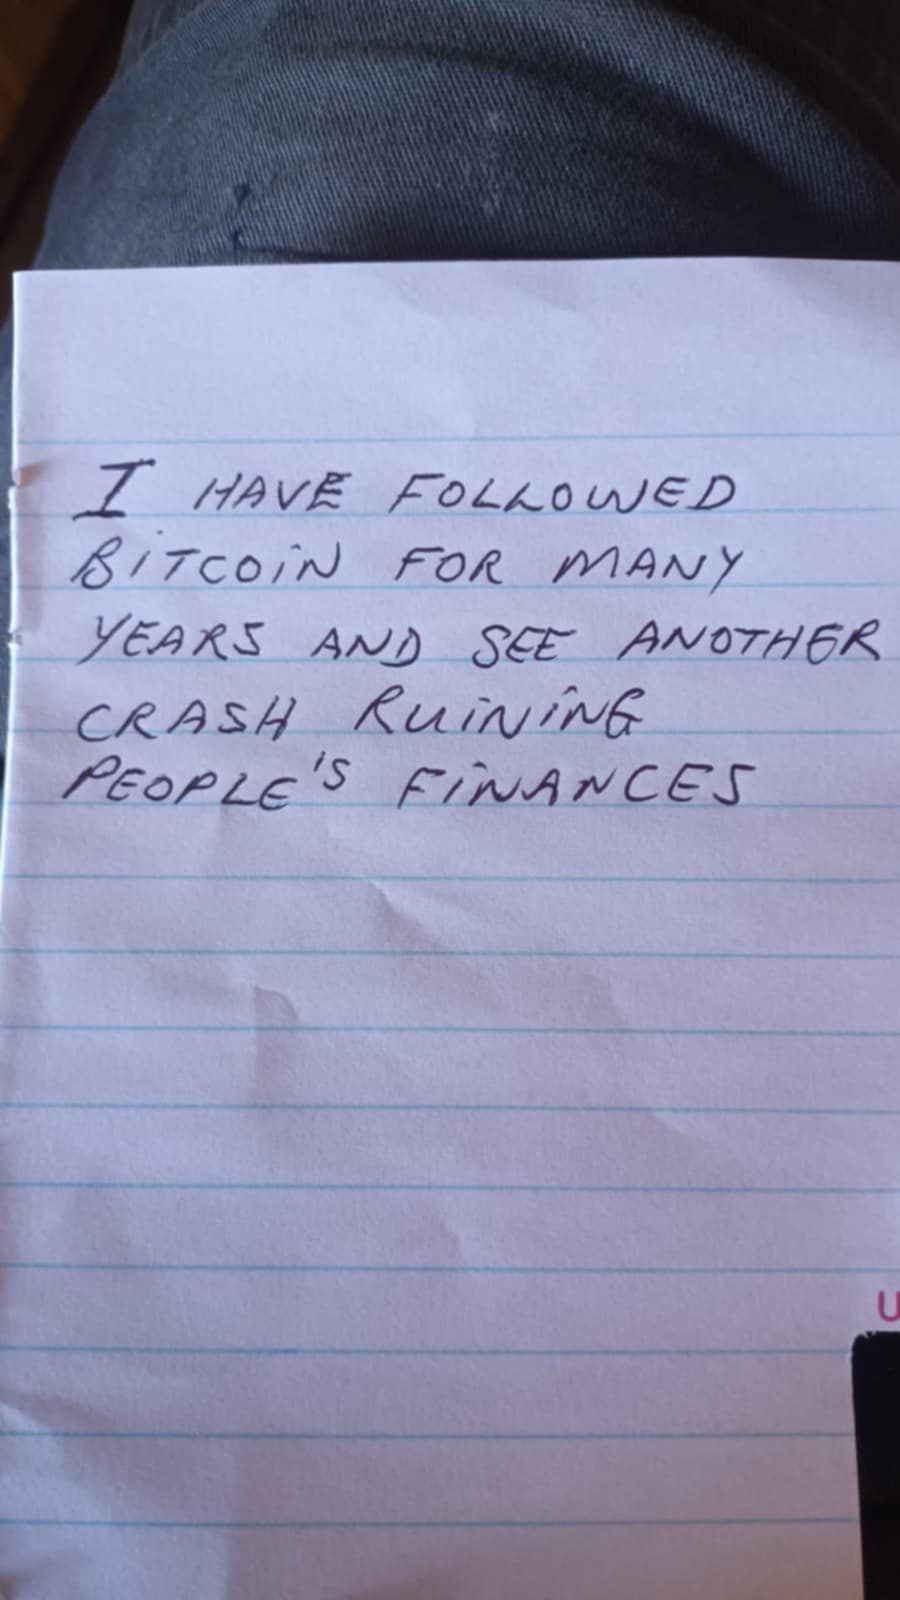 I HAVE FOLLOWED
BITCOIN FOR MANY
YEARS AND SEE ANOTHER
CRASH RUINING
PEOPLE'S FINANCES
U